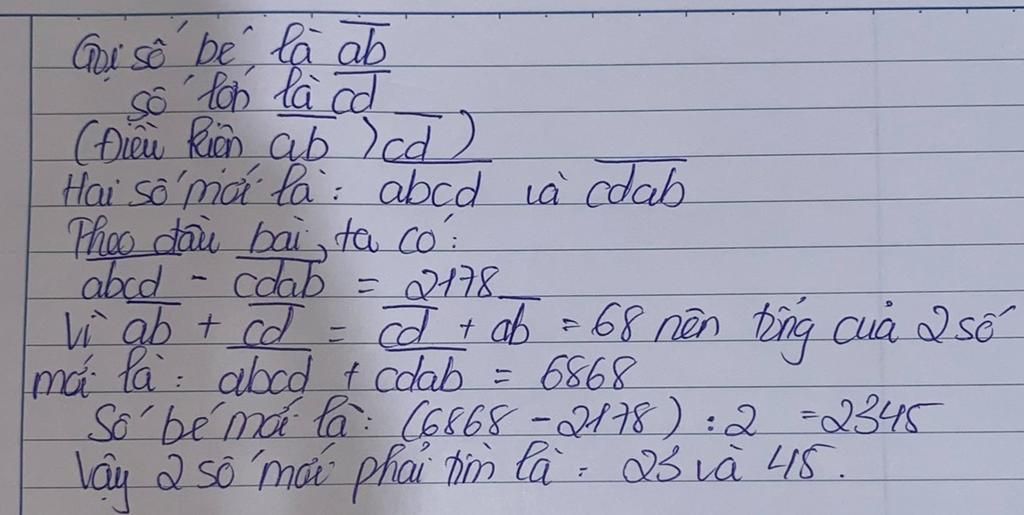 Gọi số bé là ab
số lớn là cd
(Điều kiện ab > cd)
Hai số mới là: abcd và cdab
Theo đầu bài, ta có:
abcd - cdab = 2178
Vì ab + cd = cd + ab = 68 nên tổng của 2 số
mới là: abcd + cdab = 6868
Số bé mới là: (6868 - 2178) : 2 = 2345
Vậy 2 số mới phải tìm là: 23 và 45.